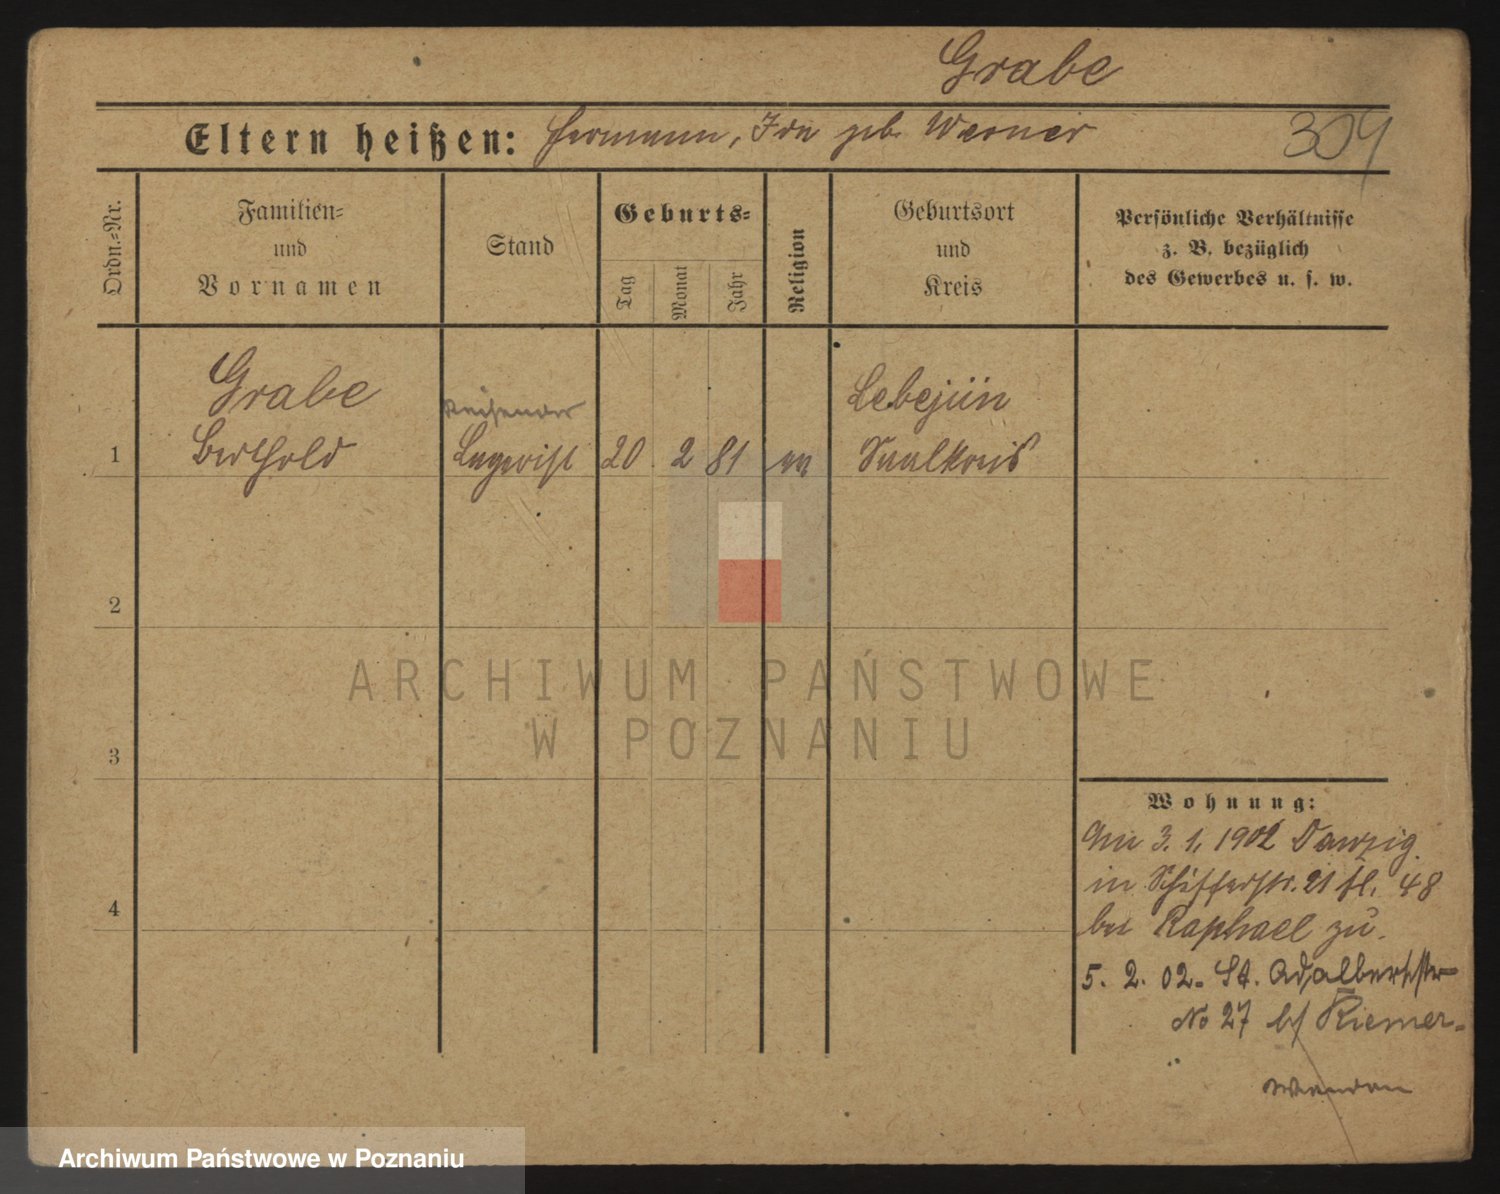 Grabe
Eltern heißen: Hermann, Ida geb. Werner
309
Ordn.-Nr.
Familien-
und
Vornamen
Stand
Geburts-
Tag
Monat
Jahr
Religion
Geburtsort
und
Kreis
Persönliche Verhältnisse
z. B. bezüglich
des Gewerbes u. s. w.
Grabe
Reisender
Löbejün
1 Berthold Lagerist 20 2 81 Saalkreis
2
3
4
ARCHIWUM PAŃSTWOWE
W POZNANIU
Wohnung:
Am 3. 1. 1902 Danzig
in Schifferstr. 21 48
bei Raphael zu.
5. 2. 02. St. Adalbertstr
No 27 b/ Riemer.
Archiwum Państwowe w Poznaniu